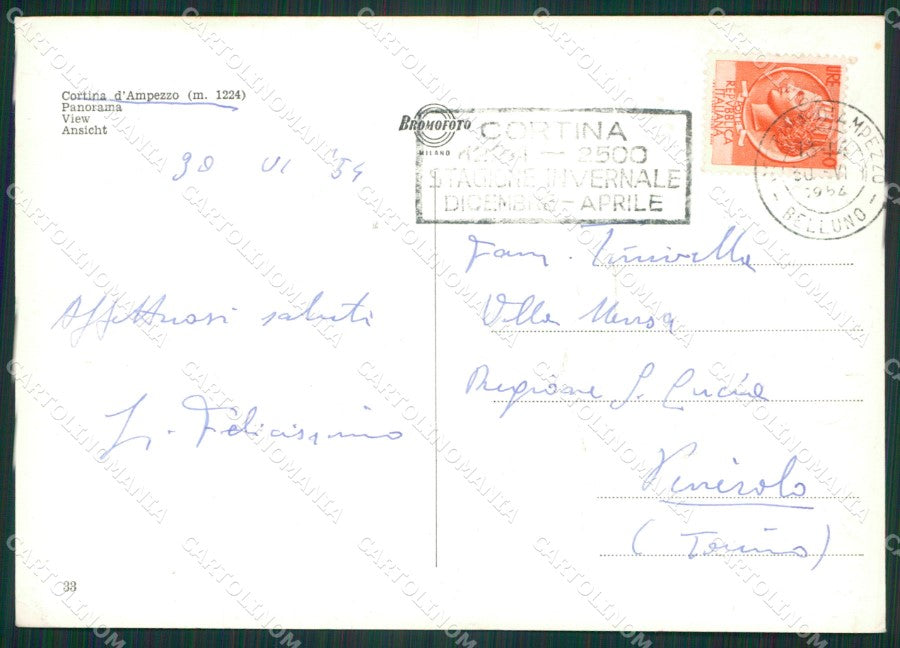 Cortina d'Ampezzo (m. 1224)
Panorama
View
Ansicht
30 VI 54
Affettuosi saluti
Felicissimo
33
BROMOFOTO
MILANO
CORTINA
2500
STAGIONE INVERNALE
DICEMBRE - APRILE
REPUBBLICA
ITALIANA
AMPEZZO
30 VI
1954
- BELLUNO -
Fam.
Villa
Regione S. Lucia
Pinerolo
(Torino)
CARTOLINOMANIA